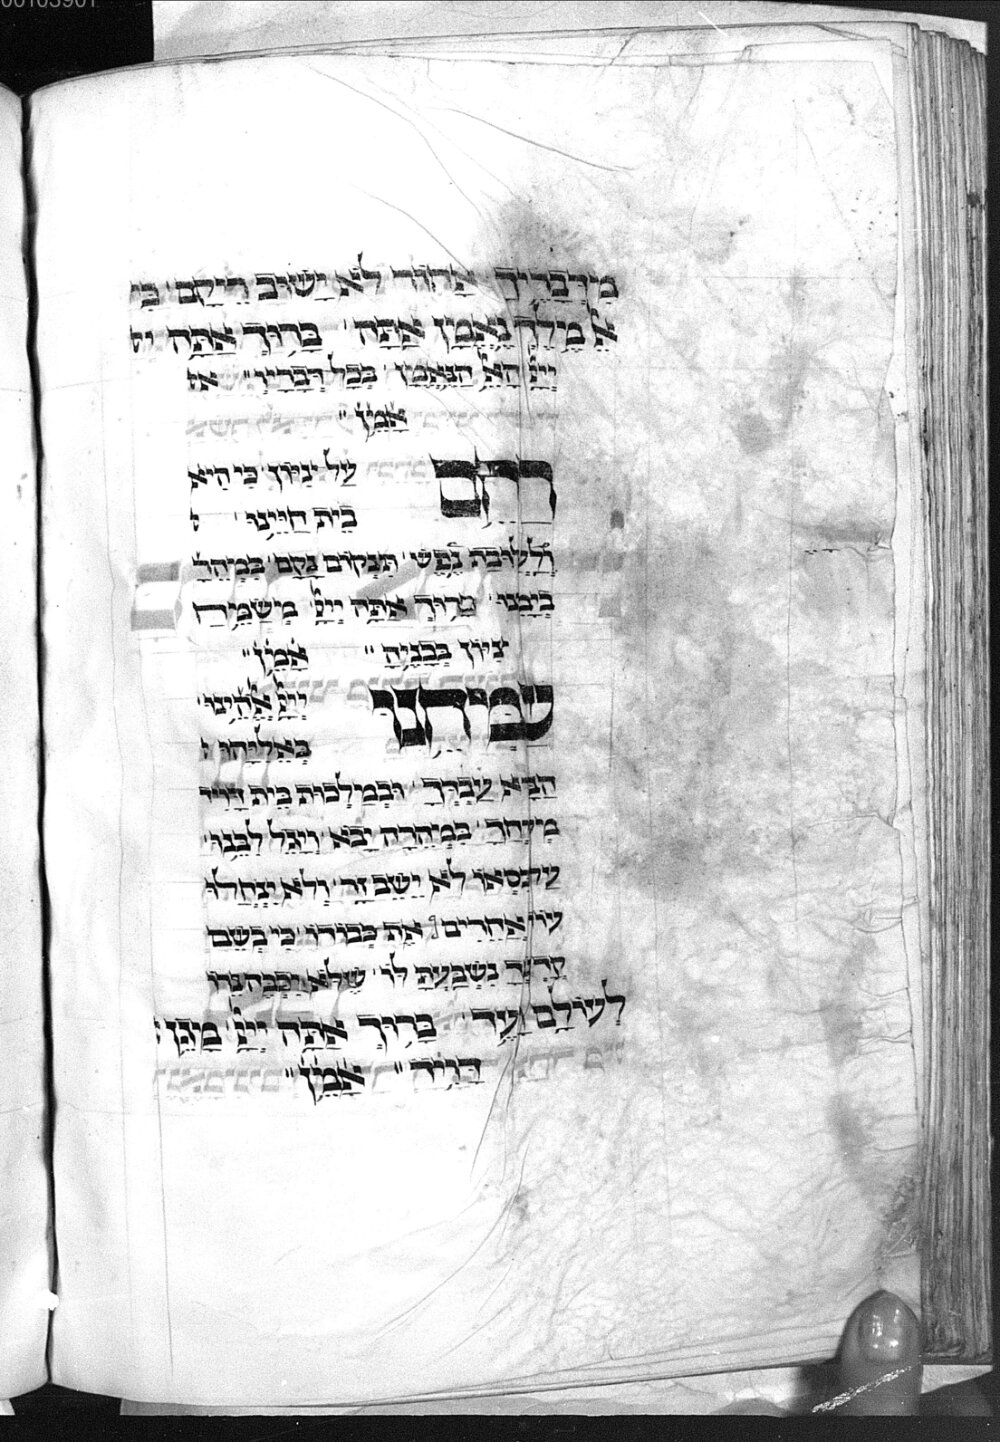 מִדְּבָרֶיךָ אָחוֹר לֹא יָשׁוּב רֵיקָם כִּי
אֵל מֶלֶךְ נֶאֱמָן אַתָּה בָּרוּךְ אַתָּה יי
יְיָ הָאֵל הַנֶּאֱמָן בְּכָל דְּבָרָיו
אָמֵן
רַחֵם עַל צִיּוֹן כִּי הִיא
בֵּית חַיֵּינוּ
וְלַעֲלוּבַת נֶפֶשׁ תִּנְקוֹם נָקָם בִּמְהֵרָ
בְיָמֵנוּ בָּרוּךְ אַתָּה יְיָ מְשַׂמֵּחַ
צִיּוֹן בְּבָנֶיהָ אָמֵן
שַׂמְּחֵנוּ יְיָ אֱלֹהֵינוּ
בְּאֵלִיָּהוּ
הַנָּבִיא עַבְדֶּךָ וּבְמַלְכוּת בֵּית דָּוִיד
מְשִׁיחֶךָ בִּמְהֵרָה יָבֹא וְיָגֵל לִבֵּנוּ
עַל כִּסְאוֹ לֹא יֵשֵׁב זָר וְלֹא יִנְחֲלוּ
עוֹד אֲחֵרִים אֶת כְּבוֹדוֹ כִּי בְשֵׁם
קָדְשְׁךָ נִשְׁבַּעְתָּ לּוֹ שֶׁלֹּא יִכְבֶּה נֵרוֹ
לְעוֹלָם וָעֶד בָּרוּךְ אַתָּה יְיָ מָגֵן
דָּוִיד אָמֵן